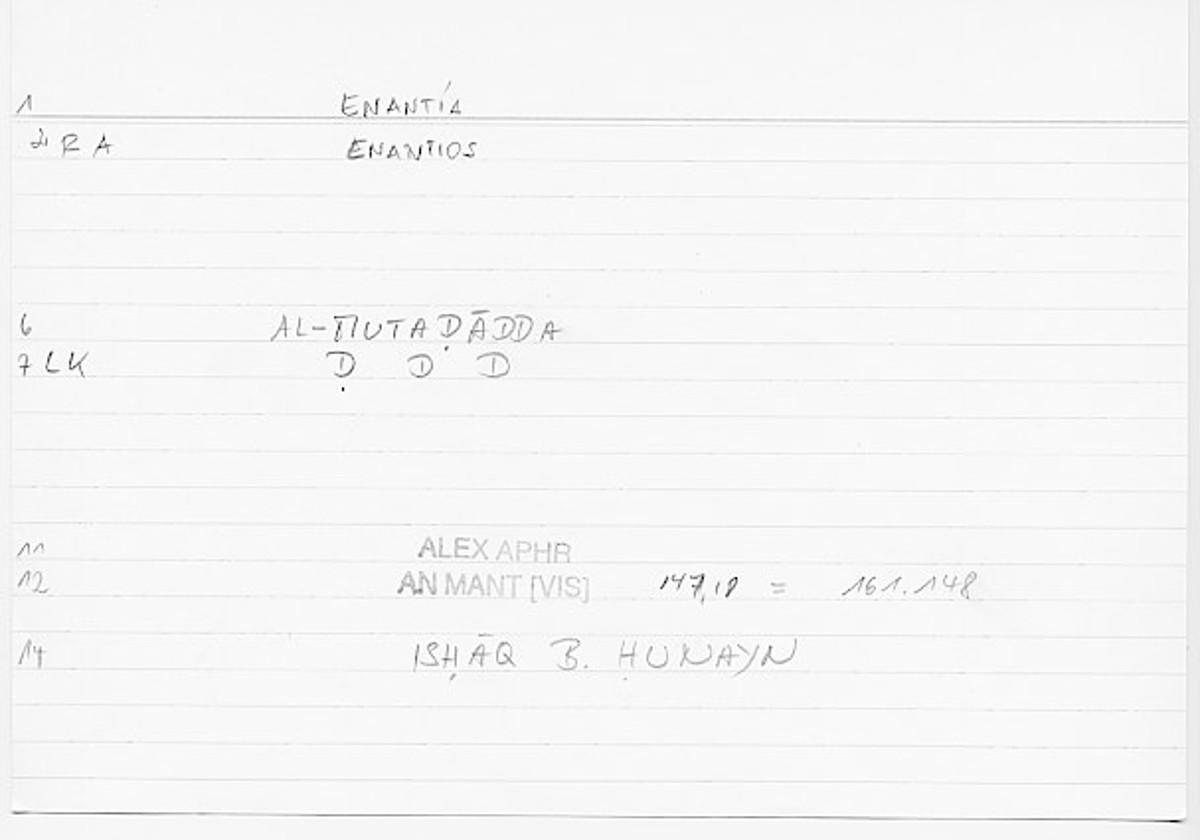 1 ENANTÍA
2 R A ENANTIOS
6 AL-MUTAḌĀDDA
7 LK Ḍ D D
11 ALEX APHR
12 AN MANT [VIS] 147,18 = 161.148
14 ISḤĀQ B. ḤUNAYN